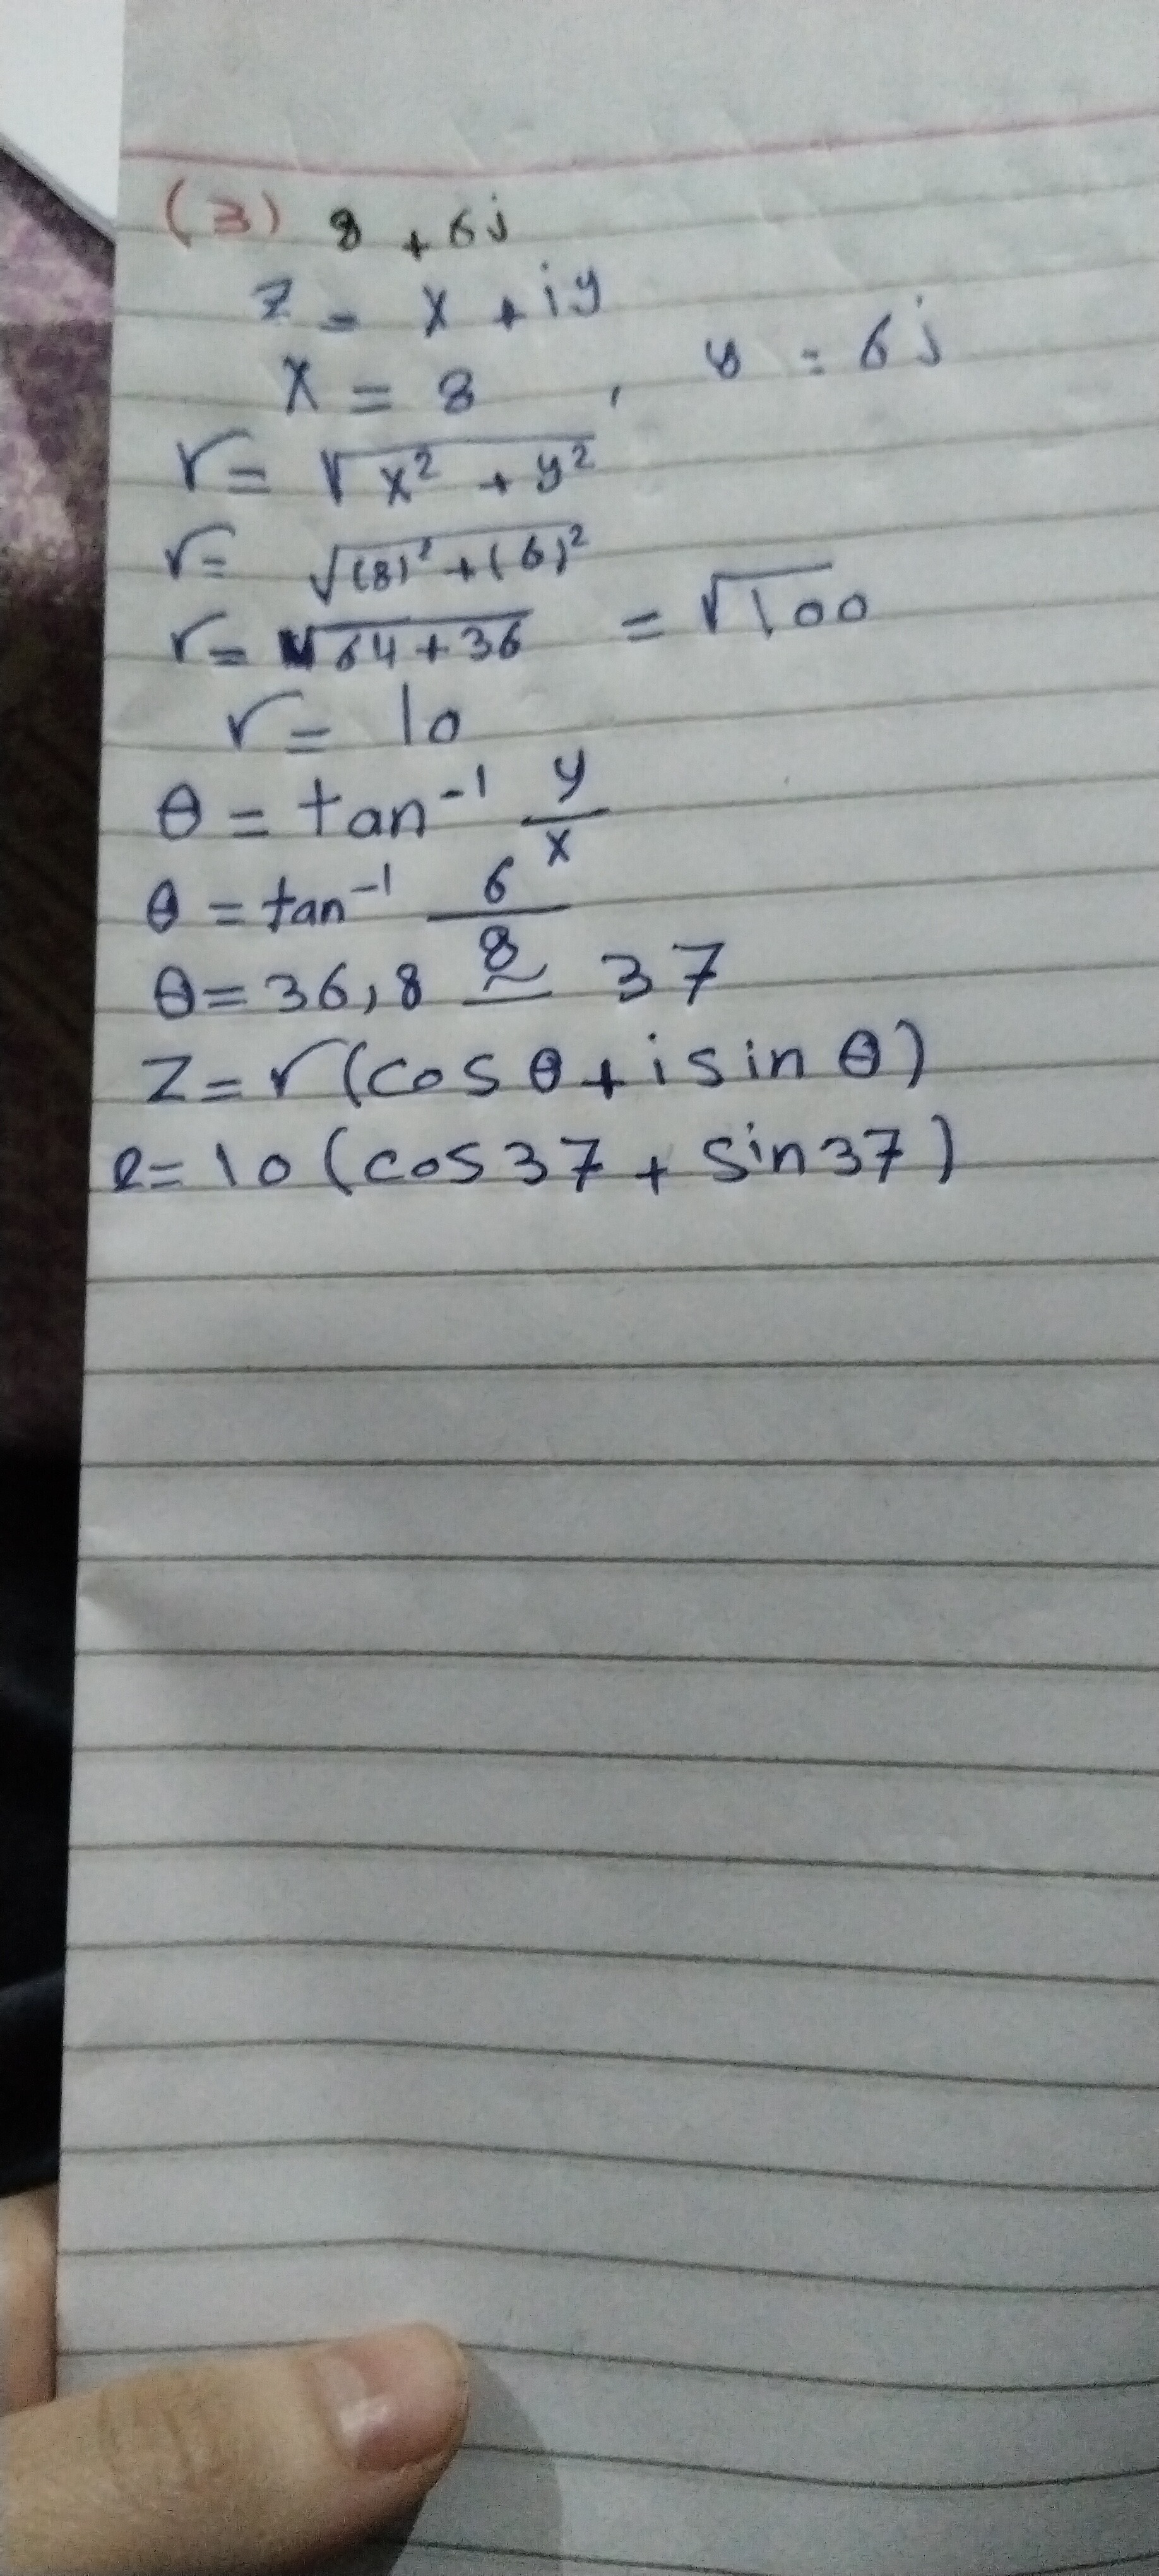 (3) 8 + 6j
z = x + iy
x = 8 , y = 6j
r = √x² + y²
r = √(8)² + (6)²
r = √64 + 36 = √100
r = 10
θ = tan⁻¹ y/x
θ = tan⁻¹ 6/8
θ = 36,8 ≃ 37
Z = r (cos θ + i sin θ)
z = 10 (cos 37 + sin 37)